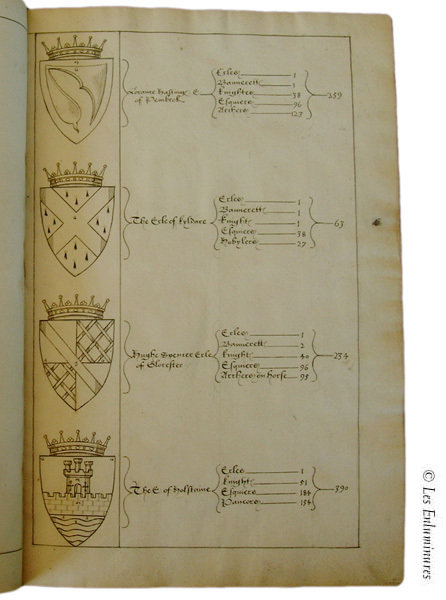 Lorance Hastinge E
of Pembrok
Erles 1
Bannerett 1
Knightes 38
Esquiers 96
Archers 123
259
The Erle of Kyldare
Erles 1
Bannerett 1
Knight 1
Esquiers 38
Hobylers 27
63
Hughe Spencer Erle
of Glocester
Erles 1
Bannerett 2
Knight 40
Esquiers 96
Archers on horse 95
234
The E of
Erles 1
Knight 51
Esquiers 184
154
390
© Les Enluminures